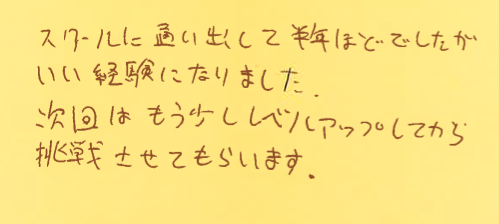 スクールに通い出して半年ほどでしたが
いい経験になりました.
次回はもう少しレベルアップしてから
挑戦させてもらいます.